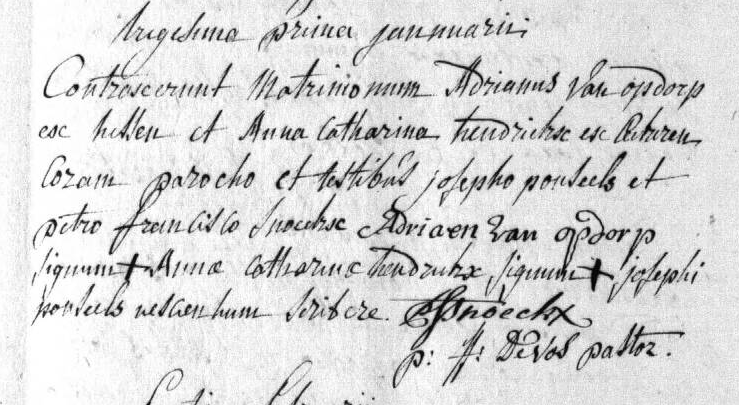 trigesima prima jannuarii
Contraxerunt Matrimonium Adrianus Van opdorp
ex hellen et Anna Catharina hendrickx ex
Coram parocho et testibus josepho ponseels et
petro francisco Snoeckx Adriaen Van opdorp
signum + Annæ Catharinæ hendrickx signum + josephi
ponseels nescientium scribere. PFSnoeckx
p: ff: DeVos pastor.